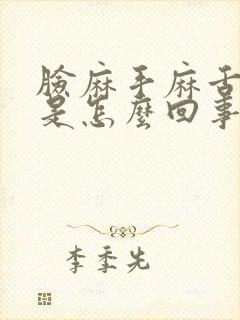 臉麻手麻舌
是怎麼回事
李季先